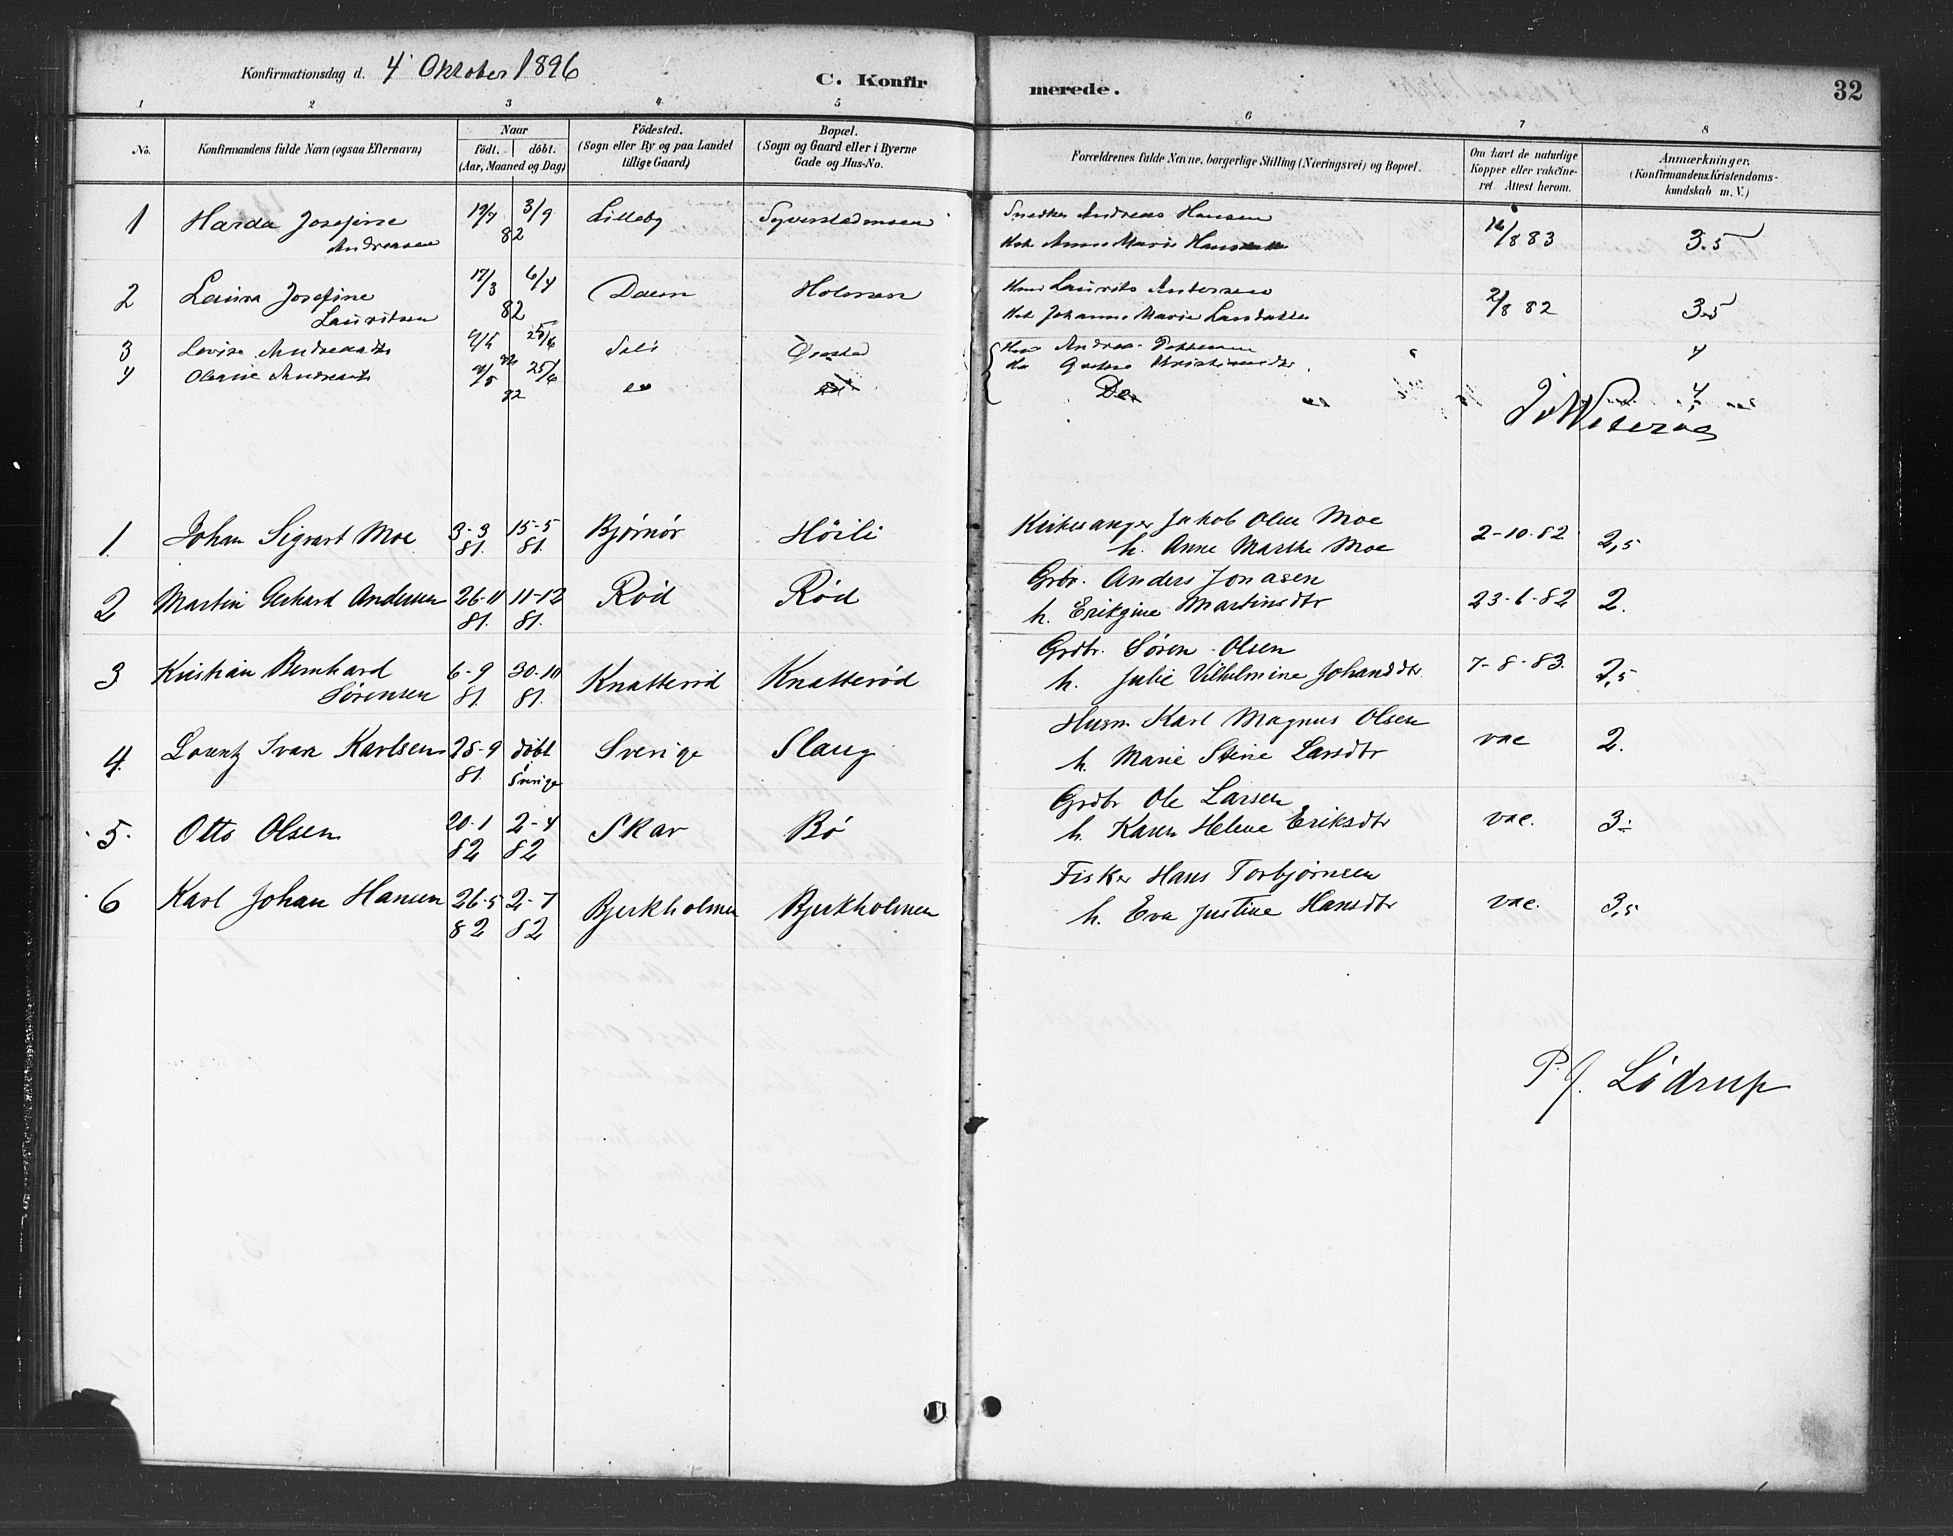 Konfirmationsdag d. 4' Oktober 1896
C. Konfirmerede.
32
1 2 3 4 5 6 7 8
No.
Konfirmandens fulde Navn (ogsaa Efternavn)
Naar
födt. döbt.
(Aar, Maaned og Dag)
Födested.
(Sogn eller By og paa Landet
tillige Gaard)
Bopæl.
(Sogn og Gaard eller i Byerne
Gade og Hus-No.
Forældrenes fulde Navne, borgerlige Stilling (Næringsvei) og Bopæl.
Om havt de naturlige
Kopper eller vakcine-
ret. Attest herom.
Anmærkninger.
(Konfirmandens Kristendoms-
kundskab m. V.)
1 Harda Josefine 19/7 3/9 Lilleby Snedker Andreas Hansen 16/8 83 3.5
Andreasen 82 Anne Marie
2 Laura Josefine 17/3 6/4 Holmen Laurits Andersen 2/8 82 3.5
Lauritsen 82 Johanne Marie
3 Lovise 25/6 4
4 25/6 4
82 Do
1. Johan Sigvart Moe 3-3 15-5 Bjørnör Höili Kirkesanger Jakob Olsen Moe 2-10-82 2,5
81. 81. h. Anne Marthe Moe
2 Martin Gerhard Andersen 26-11 11-12 Rød Rød Grbr. Anders Jonasen 23-6-82 2.
81. 81. h. Erikgine Martinsdtr
3 Kristian Bernhard 6-9 30-10 Knatterød Knatterød Grdbr. Søren Olsen 7-8-83. 2,5
Sørensen 81. 81. h. Julie Vilhelmine Johansdtr
4. Lorentz Ivar Karlsen 28-9 döbt Sverige Slaug Husm. Karl Magnus Olsen vac 2.
81. Sverige h. Marie Stine Larsdtr
5. Otto Olsen 20-1 2-4 Skar Bö Grdbr Ole Larsen vac. 3
82 82 h. Karen Helene Eriksdtr
6 Karl Johan Hansen 26-5 2-7 Bjerkholmen Bjerkholmen Fisker Hans Torbjørnsen vac. 3,5
82 82 h. Eva Justine Hansdtr
P. J. Lödrup